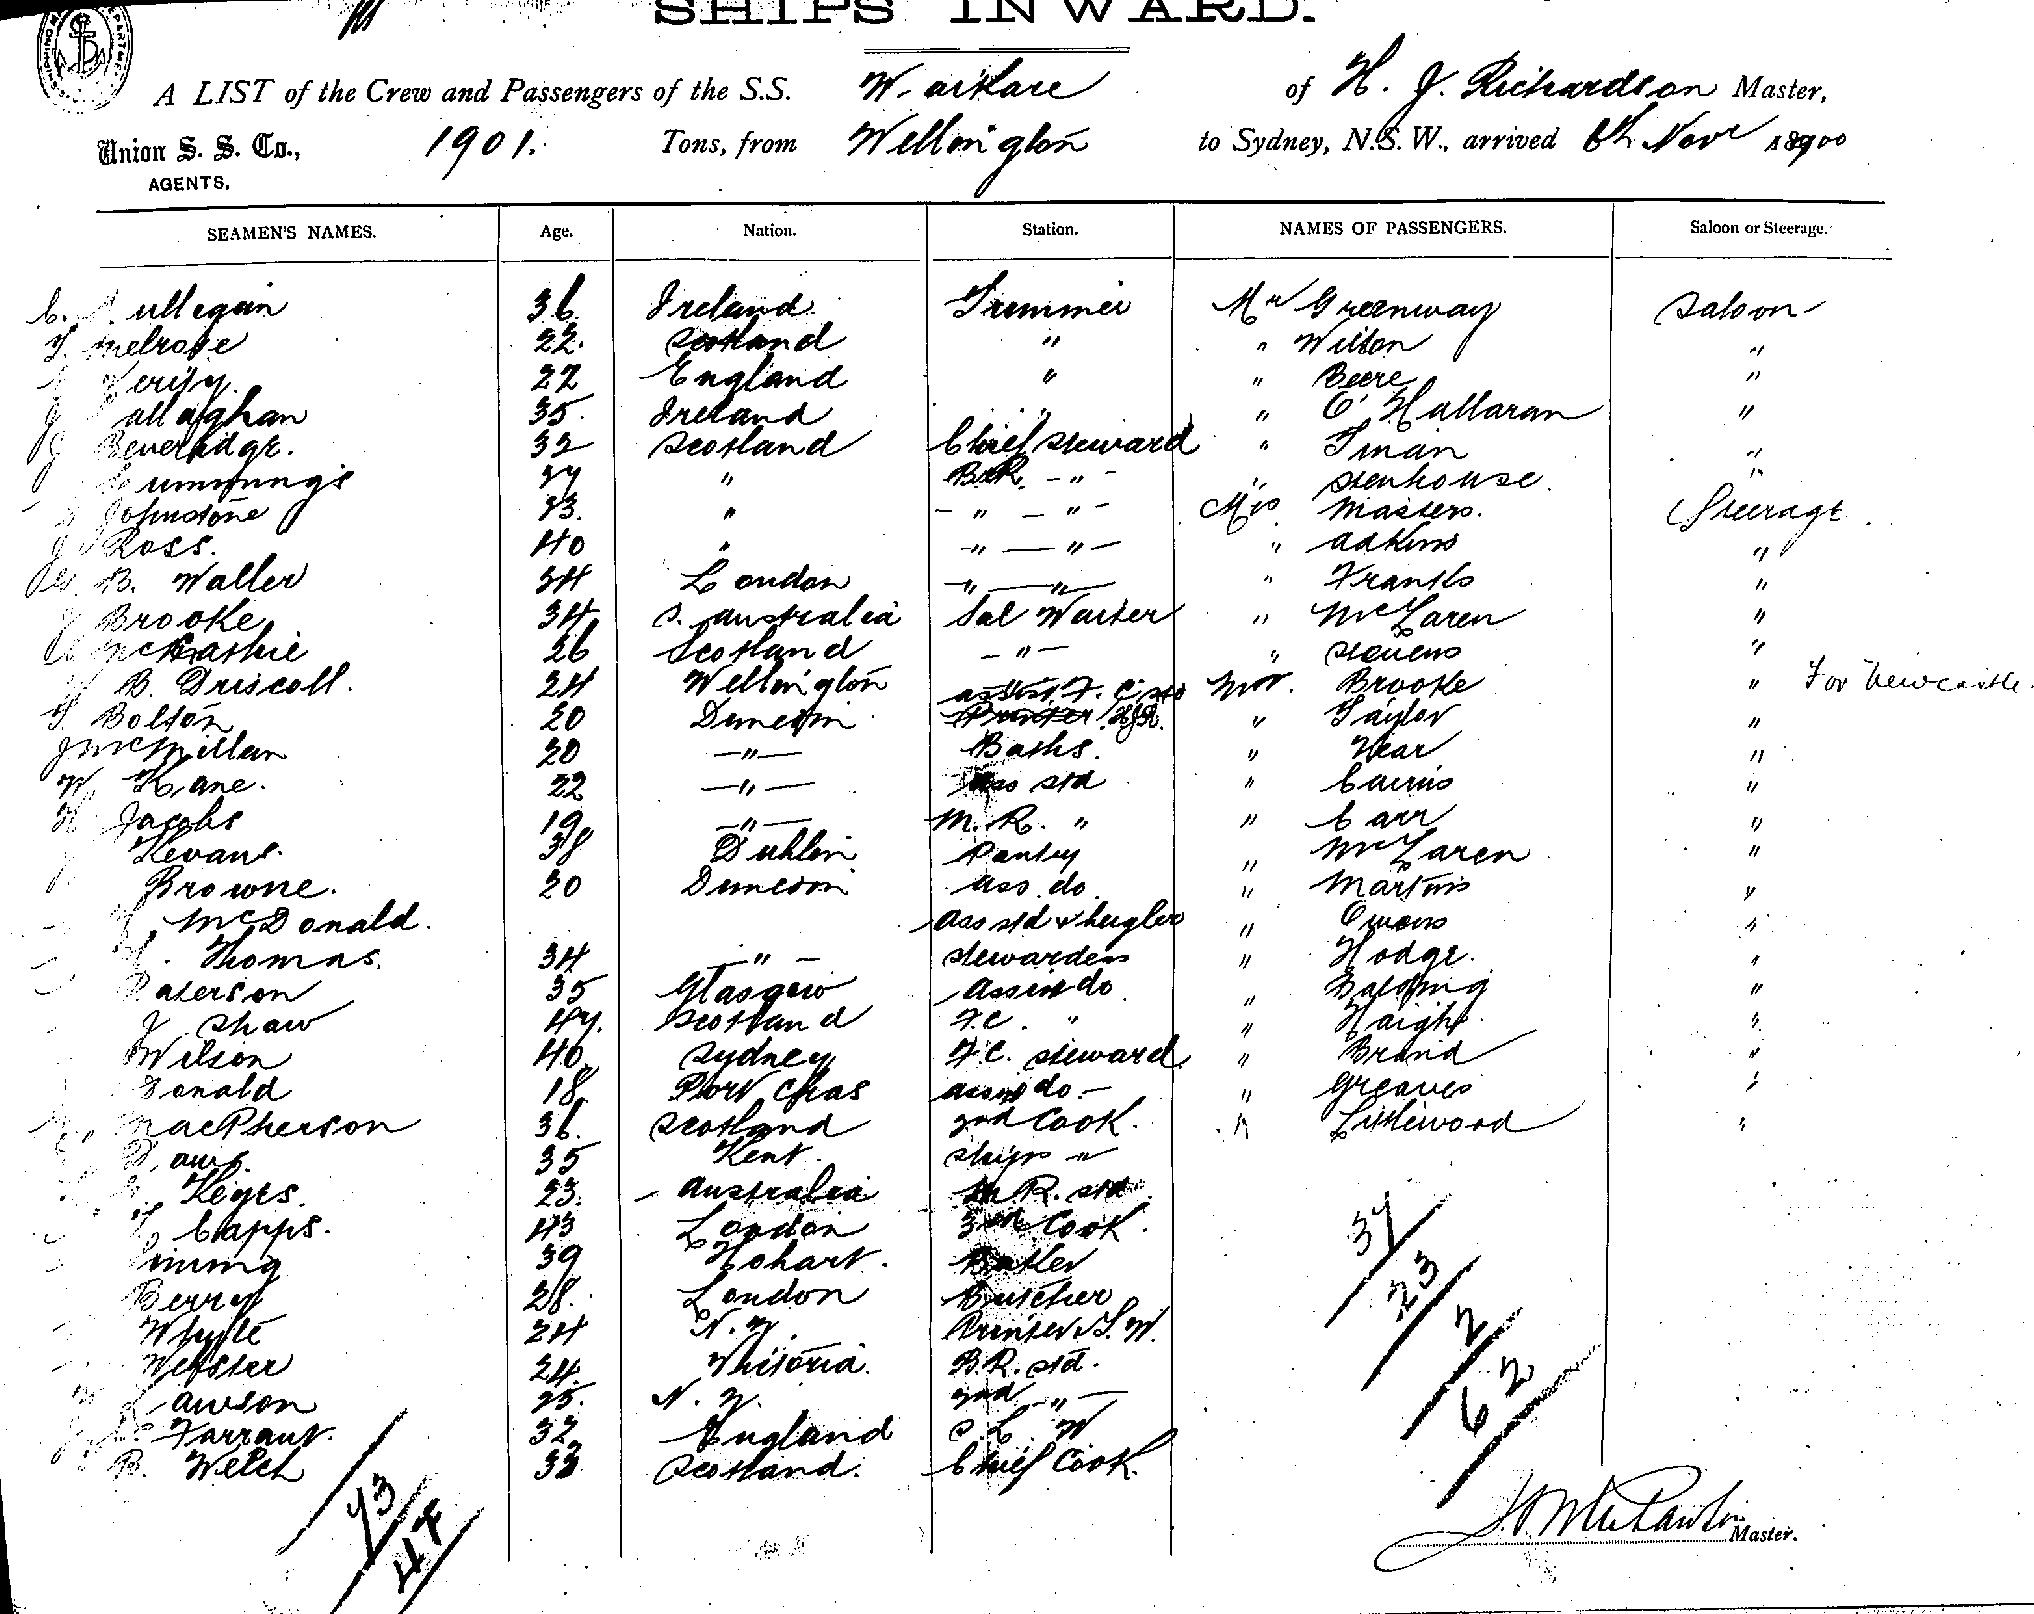 SHIPS INWARD.
A LIST of the Crew and Passengers of the S.S. Waikare of H. J. Richardson Master,
Union S. S. Co., AGENTS. 1901. Tons, from Wellington to Sydney, N.S.W., arrived 6th Novr 1900
SEAMEN'S NAMES. Age. Nation. Station. NAMES OF PASSENGERS. Saloon or Steerage.
C. ullegan 36 Ireland Trimmer Mr Greenway Saloon
T. Melrose 22. Scotland " " Wilton "
Verity. 22 England " " Beere "
J allaghan 35. Ireland " " O'Hallaran "
J Beveridge. 32 Scotland Chief Steward " Tinan "
Cummings 37 " B.R. - " - " Stenhouse. "
Johnstone 23. " - " - " - Mrs Masters. Steerage.
J Ross. 40 " - " - " - " Adkins "
B. Waller 34 London - " - " - " Franks "
J Brooke 34 S. Australia Sal Waiter " McLaren "
McKashie 26 Scotland - " - " Stevens "
B. Driscoll. 24 Wellington Assist F. C. Std Mr. Brooke " For Newcastle.
T. Bolton 20 Dunedin Printer HJR. " Taylor "
J McMillan 20 - " - Baths. " Near "
W. Kane. 22 - " - Ass Std " Cairns "
H Jacobs 19 - " - M. R. " " Carr "
J. Kevans. 38 Dublin Pantry " McLaren "
Browne. 20 Dunedin Ass. do " Martins "
McDonald. Ass std & bugler " Owens "
Thomas. 34 - " - Stewardess " Hodge. "
Paterson 35 Glasgow Assist do "
J Shaw 47. Scotland F.C. " " Haigh. "
Wilson 40 Sydney F.C. Steward " Brand "
Donald 18 Port Chas Assist do - " Greaves "
MacPherson 36. Scotland 2nd Cook. " Littlewood "
Daws. 35 Kent. Ships "
Keyes. 23. Australia M.R. std
Capps. 43 London 3rd Cook.
39 Hobart. Baker
Berry 28. London Butcher
Whyte 24 N.Z. Printer & S.W.
Webster 24. Victoria. B.R. std.
Lawson 25. N.Z. 2nd - " -
Farrant. 32 England S. L. W
B. Welch 33 Scotland. Chief Cook.
37
23
2
62
73
47
Master.